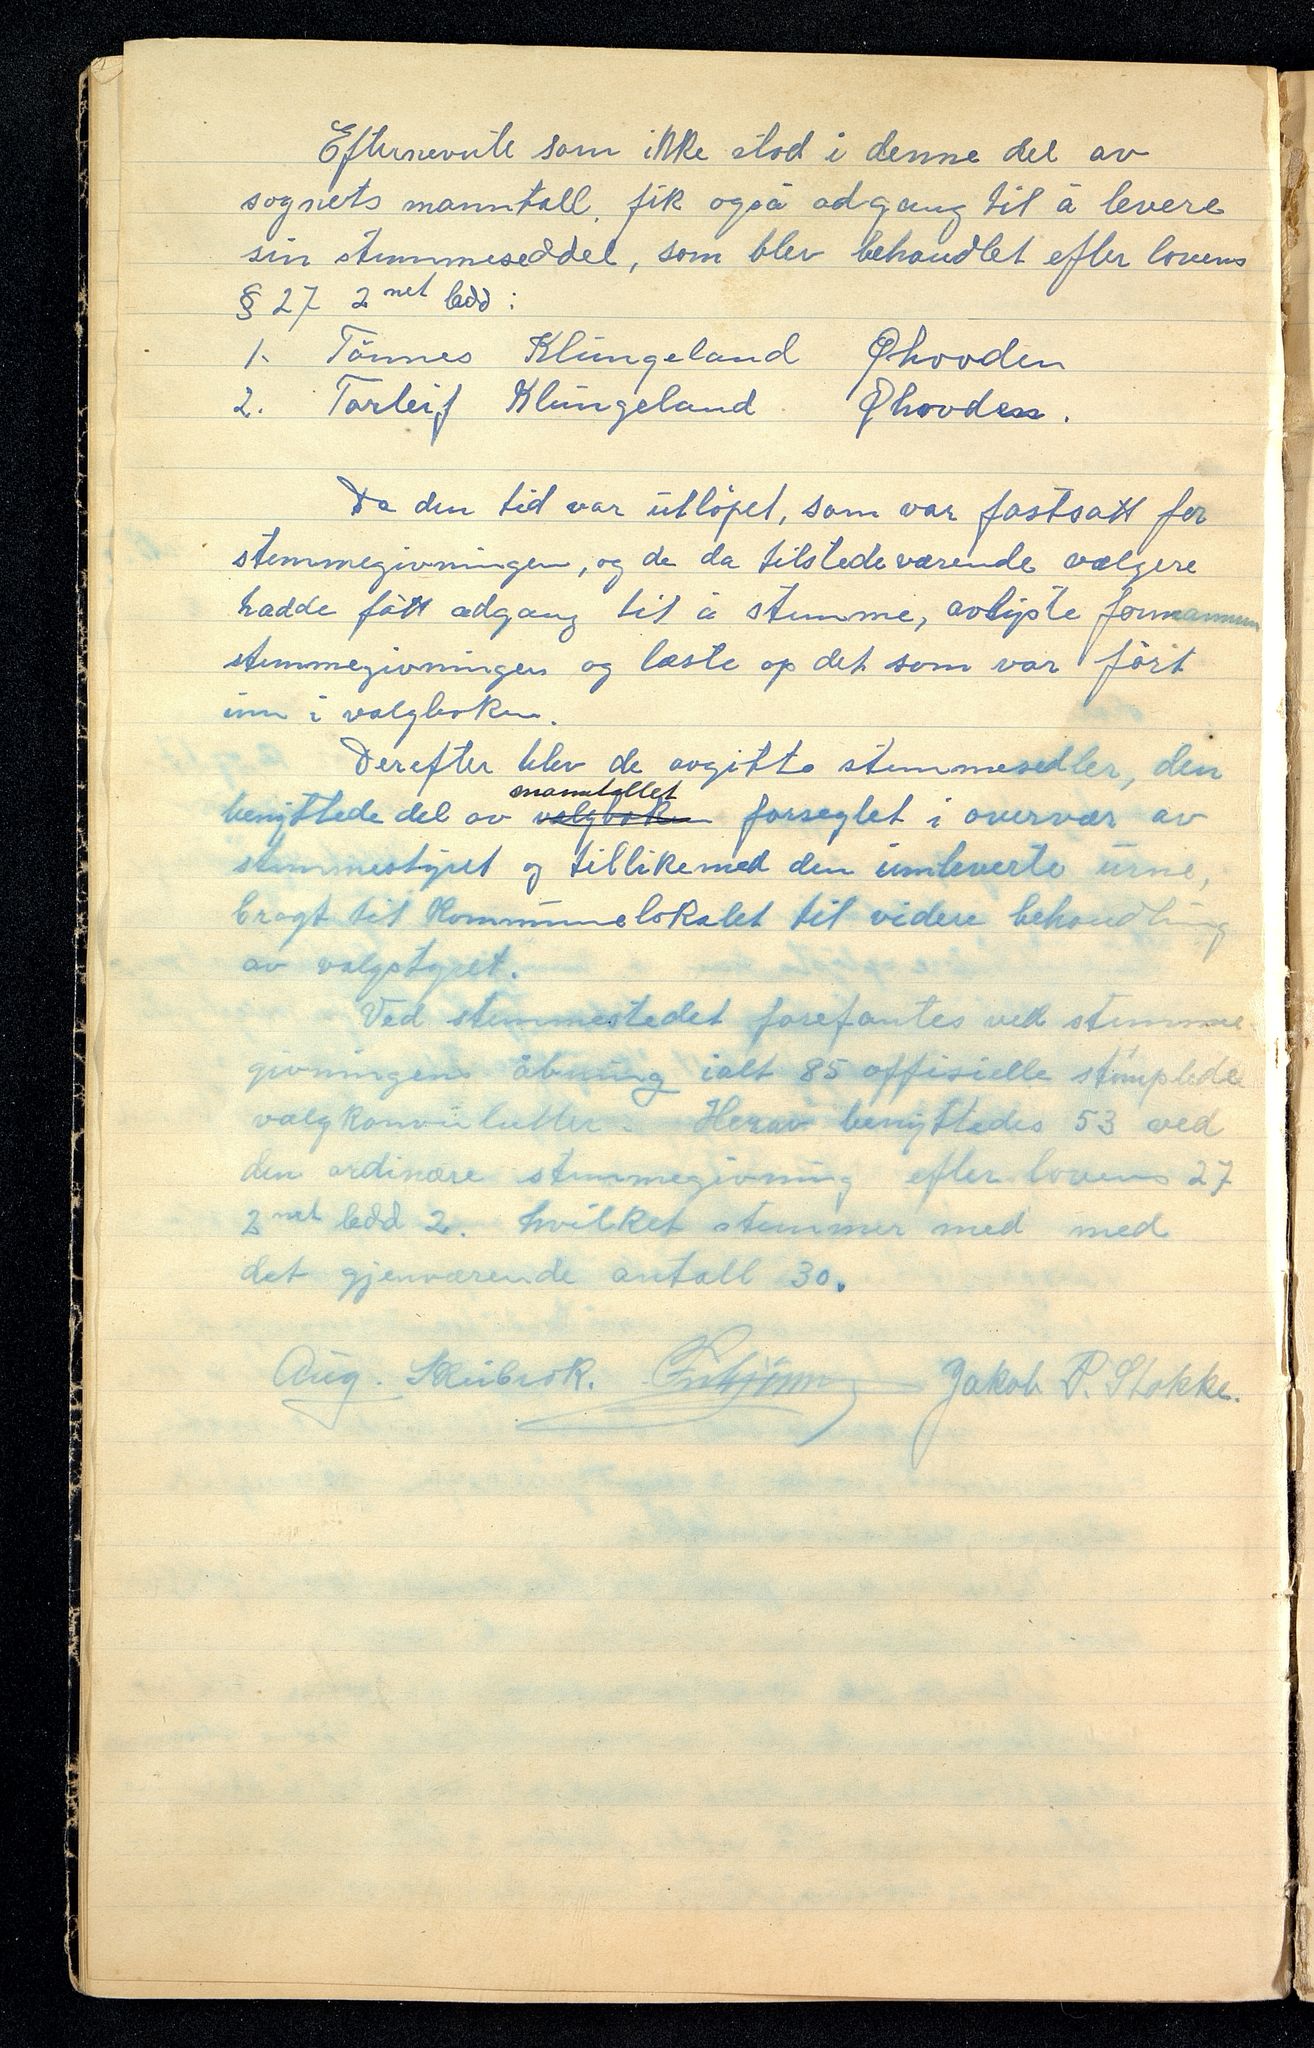 Efternevnte som ikke stod i denne del av
sognets manntall, fik også adgang til å levere
sin stemmeseddel, som blev behandlet efter lovens
§ 27 2net ledd:
1. Tönnes Klungeland Øhovden
2. Torleif Klungeland Øhovden.
Da den tid var utlöpet, som var fastsatt for
stemmegivningen, og de da tilstedeværende vælgere
hadde fått adgang til å stemme, avlyste formannen
stemmegivningen og læste op det som var fört
inn i valgboken.
Derefter blev de avgitte stemmesedler, den
manntallet
benyttede del av valgboken forseglet i overvær av
stemmestyret og tillikemed den innleverte urne,
bragt til kommunelokalet til videre behandling
av valgstyret.
Ved stemmestedet forefantes ved stemme
givningens åbning ialt 85 offisielle stemplede
valgkonvulutter. Herav benyttedes 53 ved
den ordinære stemmegivning efter lovens 27
2net ledd 2. hvilket stemmer med med
det gjenværende antall 30.
Aug. Skeibrok. Jakob P. Stokke.